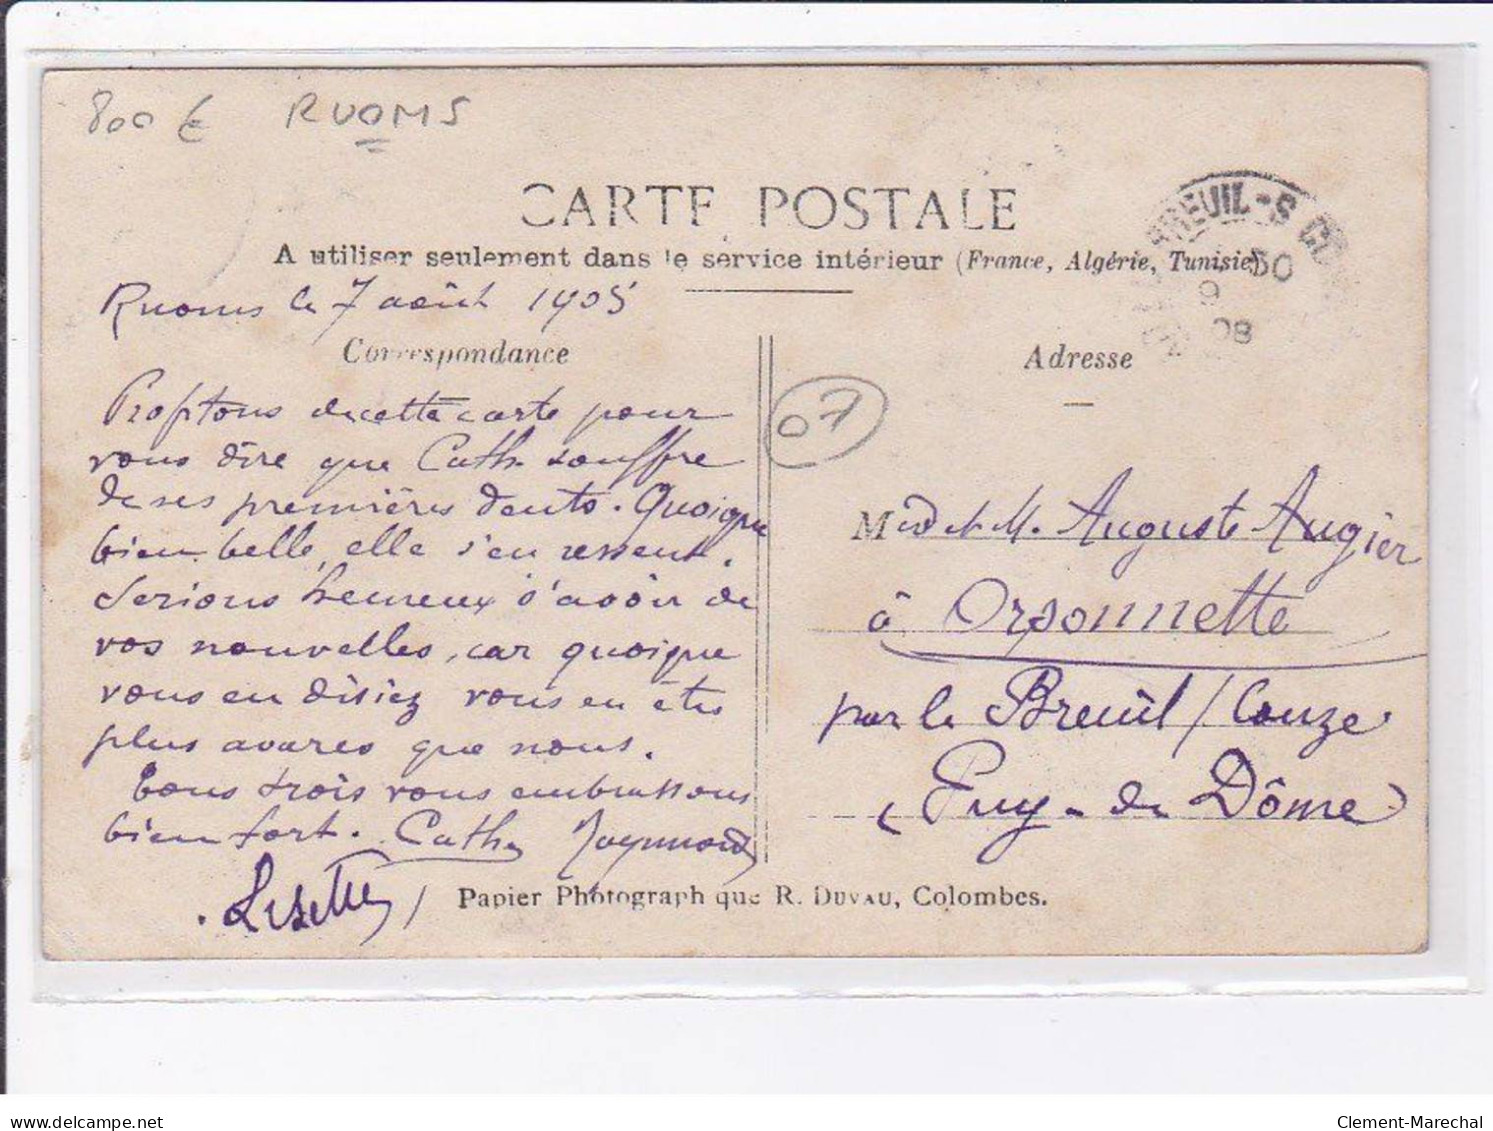 800 € RUOMS
CARTE POSTALE
A utiliser seulement dans le service intérieur (France, Algérie, Tunisie)
REUIL-S CO
50
9
08
Ruoms le 7 août 1905
Correspondance
Profitons de cette carte pour
vous dire que Cath. souffre
de ses premières dents. Quoique
bien belle, elle s'en ressent.
Serions heureux d'avoir de
vos nouvelles, car quoique
vous en disiez vous en êtes
plus avares que nous.
Tous trois vous embrassons
bien fort. Cath. Raymond
Lisette
07
Adresse
Mad et M. Auguste Augier
à Orsonnette
par le Breuil / Couze
(Puy-de Dôme)
Papier Photographique R. DUVAU, Colombes.
delcampe.net
Clement-Marechal